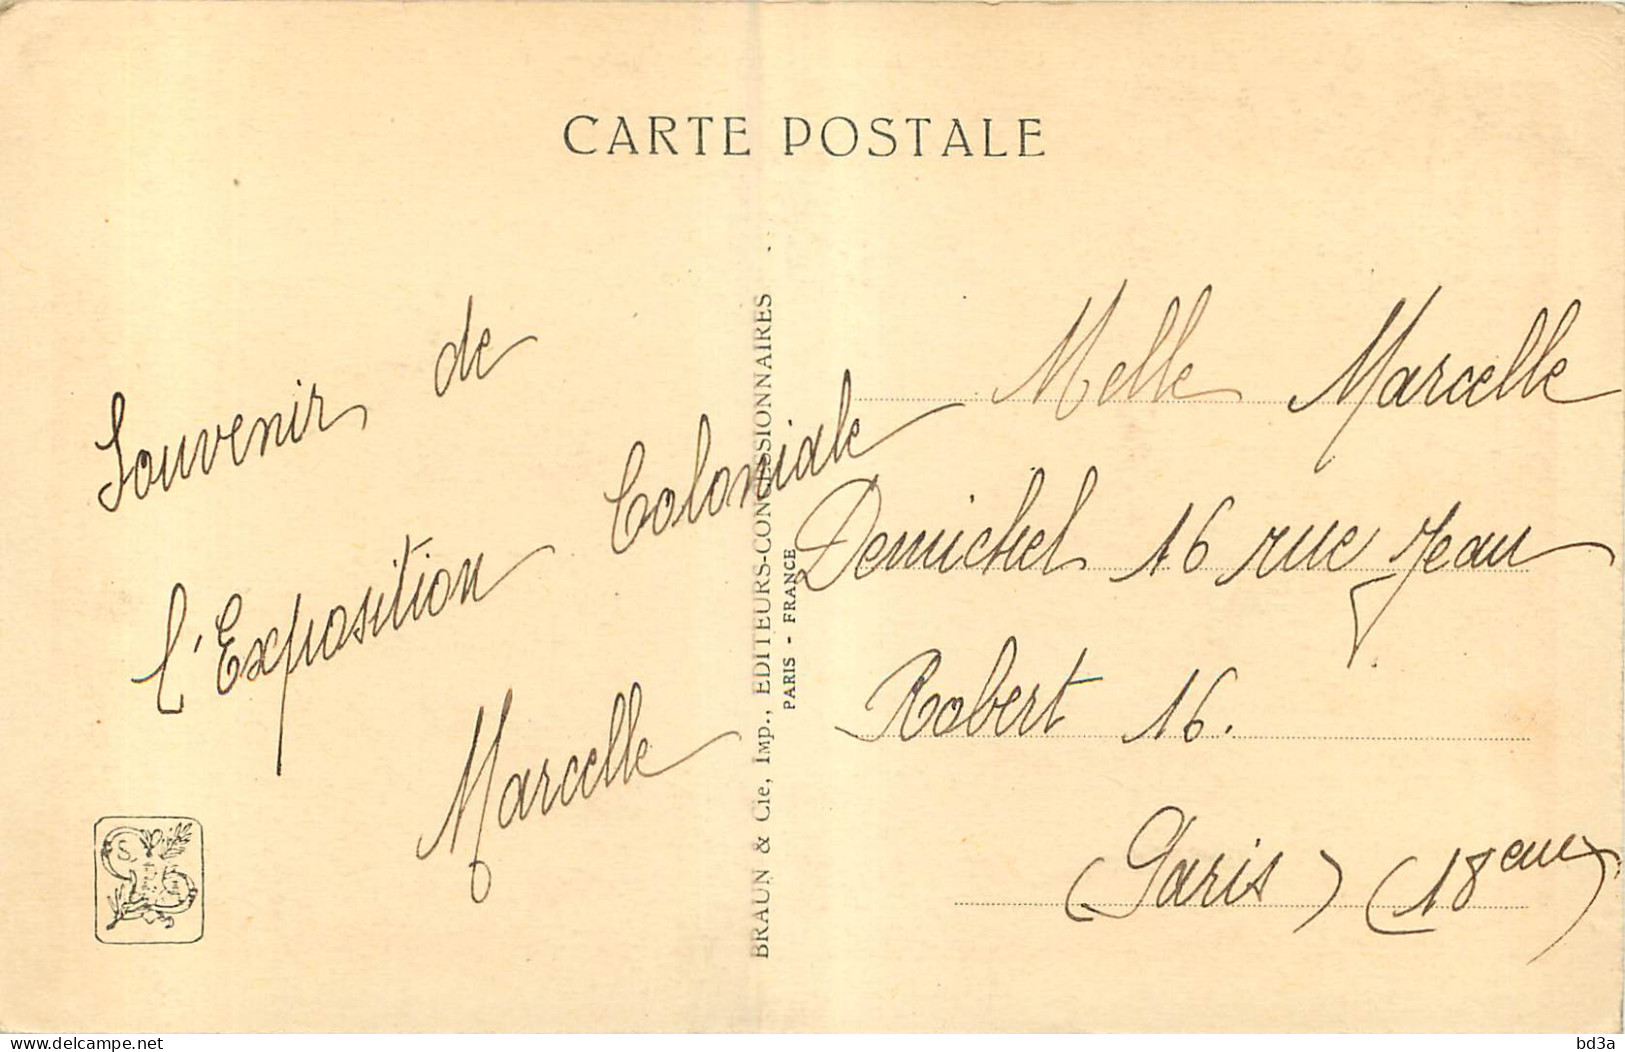 CARTE POSTALE
Souvenir de
l'Exposition Coloniale
Marcelle
BRAUN & Cie, IMP., EDITEURS-CONCESSIONNAIRES
PARIS - FRANCE
Melle Marcelle
Demichel 16 rue Jean
Robert 16.
(Paris) (18eme)
delcampe.net
bd3a